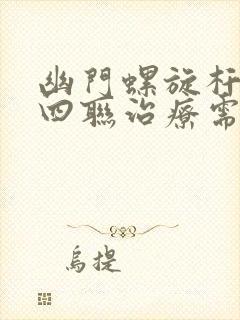 幽門螺旋杆
四聯治療需
烏提